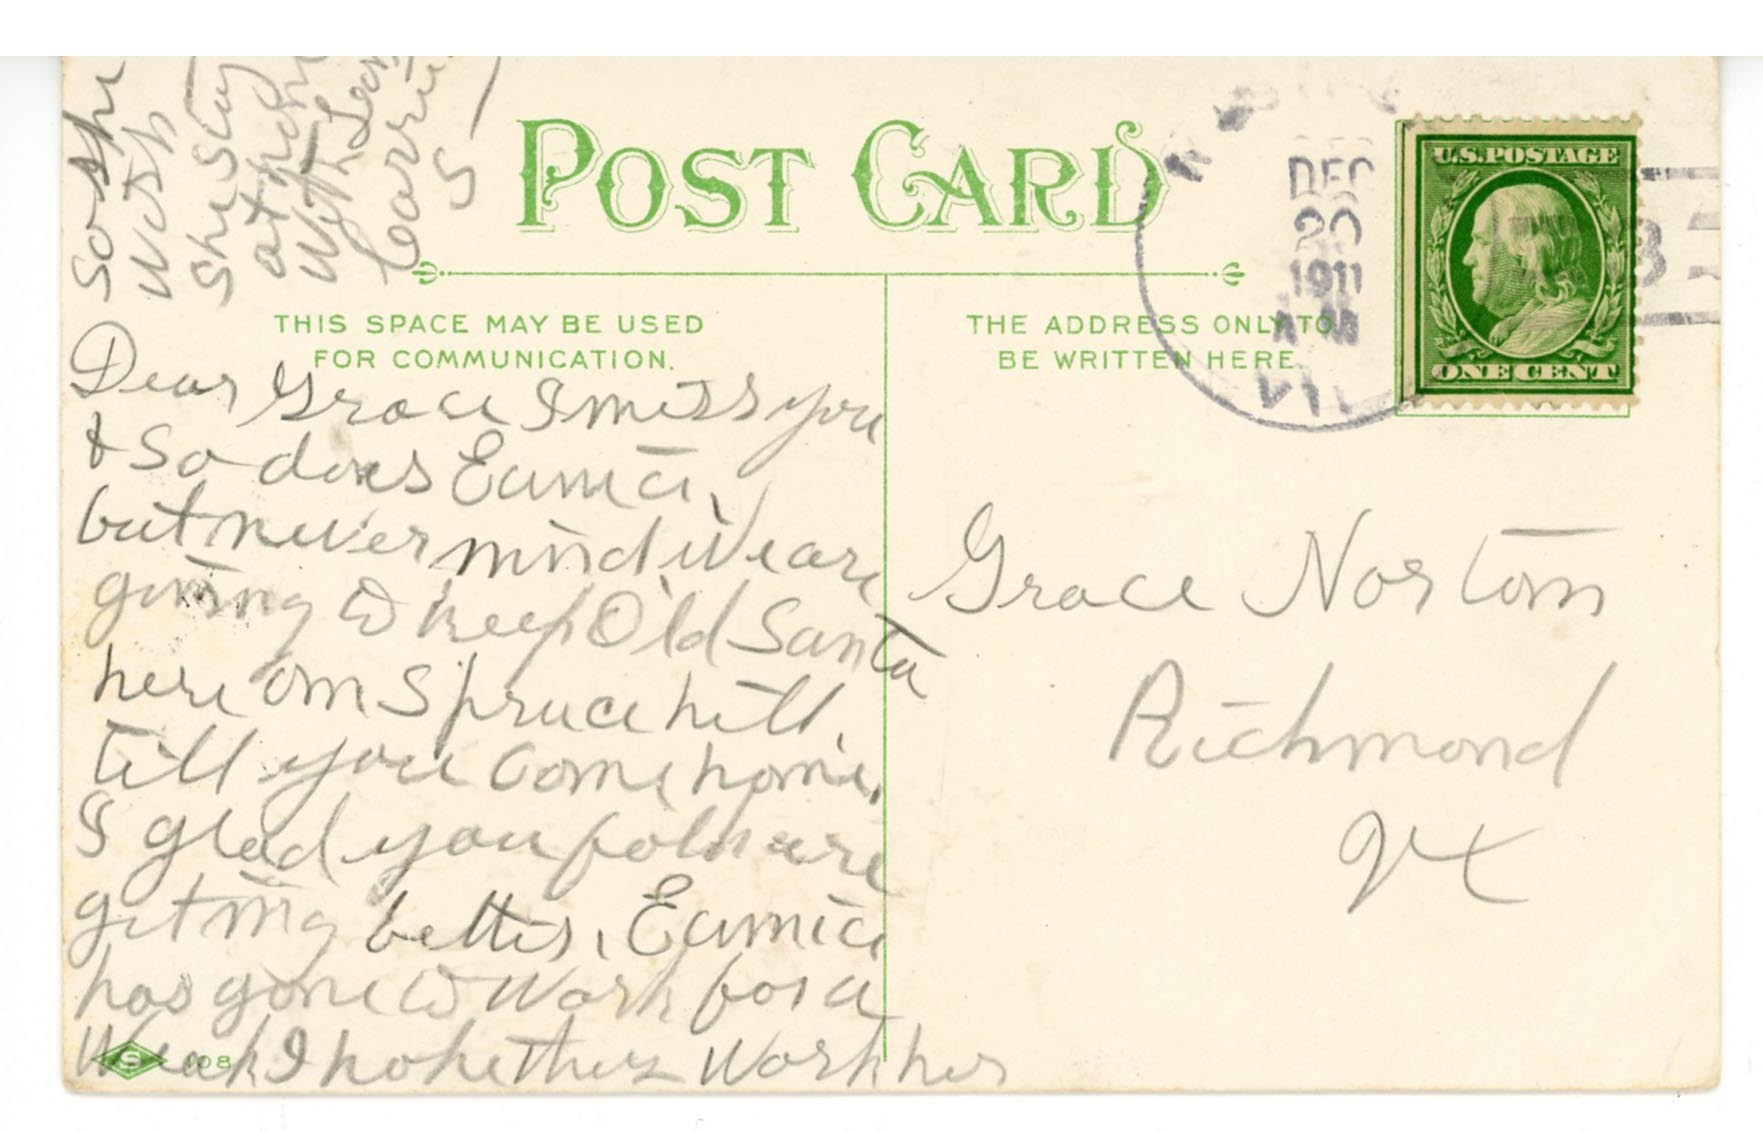 POST CARD
THIS SPACE MAY BE USED
FOR COMMUNICATION.
THE ADDRESS ONLY TO
BE WRITTEN HERE.
DEC
20
1911
VT.
U.S.POSTAGE
ONE CENT
Dear Grace I miss you
& so does Eunice,
but never mind We are
going to keep Old Santa
here on Spruce hill,
till you come home.
I glad you folks are
geting better, Eunice
has gone to Work for a
Weak I hope they Work her
So she
Wish
She Stay
at
With
Carrie
S
Grace Norton
Richmond
Vt
S 108